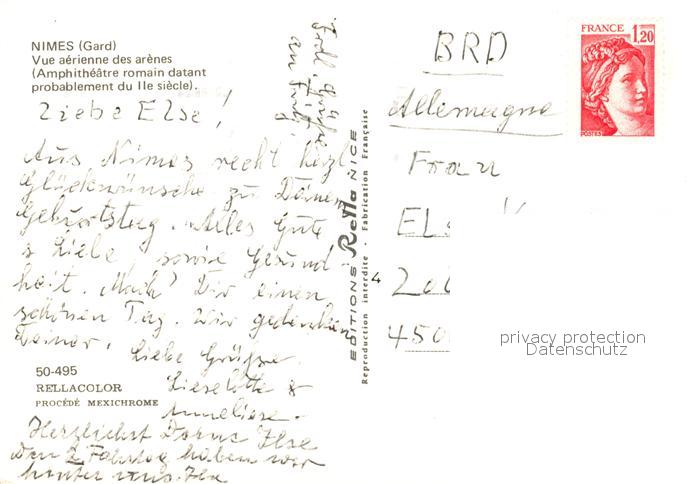 NIMES (Gard)
Vue aérienne des arènes
(Amphithéâtre romain datant
probablement du IIe siècle).
Liebe Else!
Aus Nimes recht herzl.
Glückwünsche zu Deinem
Geburtstag. Alles Gute
& Liebe, sowie Gesund-
heit. Mach' Dir einen
schönen Tag. Wir gedenken
Deiner. Liebe Grüsse
Lieselotte &
Anneliese.
Herzlichst Deine Ilse
Den 2 Fahrtag haben wir
hinter uns.
Grüße
an
50-495
RELLACOLOR
PROCÉDÉ MEXICHROME
EDITIONS Rella NICE
Reproduction interdite - Fabrication Française
4
FRANCE 1,20
POSTES
BRD
Allemagne
Frau
450
privacy protection
Datenschutz